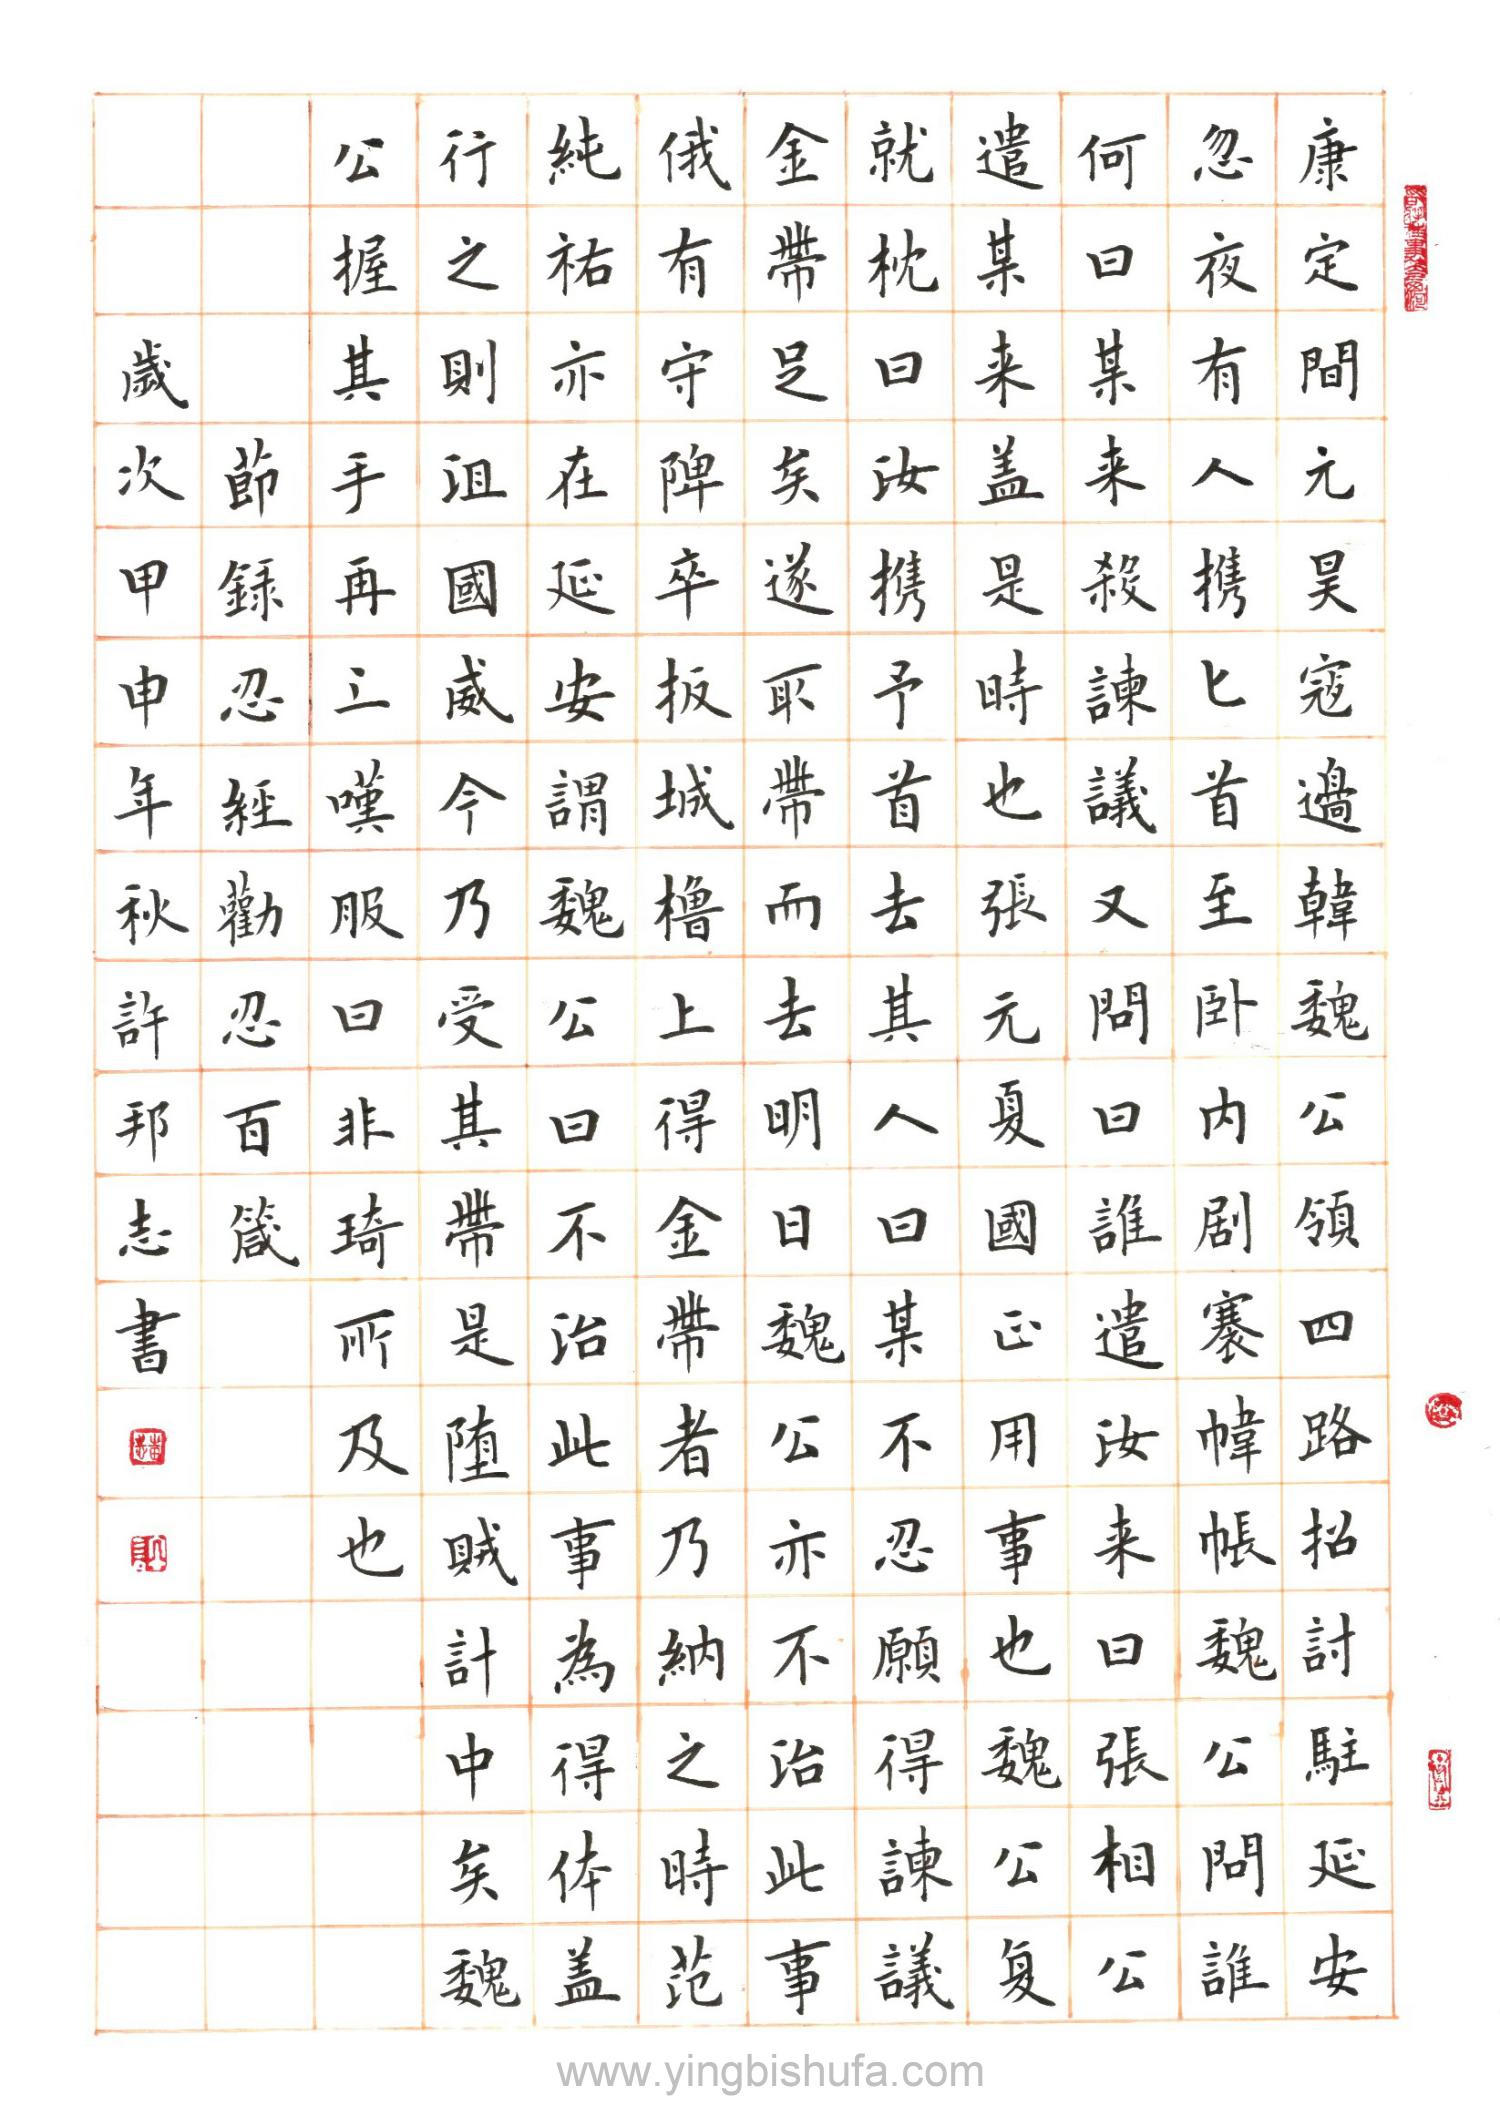 康定間元昊寇邉韓魏公領四路招討駐延安
忽夜有人携匕首至卧内剧褰幃帳魏公問誰
何曰某来殺諫議又問曰誰遣汝来曰張相公
遣某来盖是時也張元夏國正用事也魏公复
就枕曰汝携予首去其人曰某不忍願得諫議
金帶足矣遂取帶而去明日魏公亦不治此事
俄有守陴卒扳城櫓上得金帶者乃納之時范
純祐亦在延安謂魏公曰不治此事為得体盖
行之則沮國威今乃受其帶是堕賊計中矣魏
公握其手再三嘆服曰非琦所及也
節録忍經勸忍百箴
歲次甲申年秋許邦志書
www.yingbishufa.com